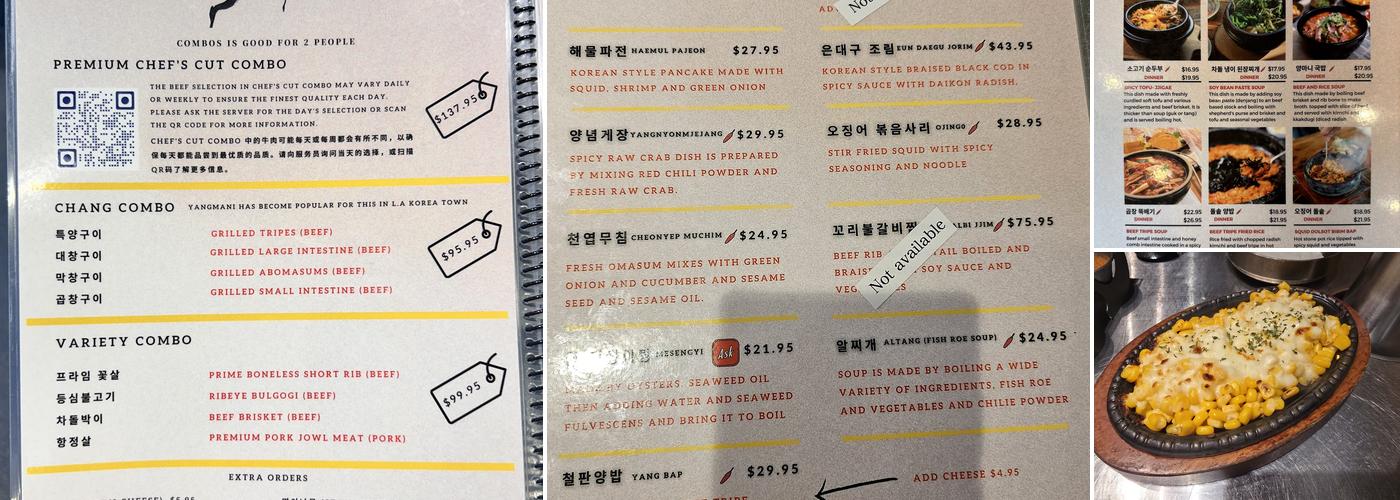 COMBOS IS GOOD FOR 2 PEOPLE
PREMIUM CHEF'S CUT COMBO
THE BEEF SELECTION IN CHEF'S CUT COMBO MAY VARY DAILY
OR WEEKLY TO ENSURE THE FINEST QUALITY EACH DAY.
PLEASE ASK THE SERVER FOR THE DAY'S SELECTION OR SCAN
THE QR CODE FOR MORE INFORMATION.
$137.95
CHEF'S CUT COMBO 中的牛肉可能每天或每周都会有所不同，以确
保每天都能品尝到最优质的品质。请向服务员询问当天的选择，或扫描
QR码了解更多信息。
CHANG COMBO YANGMANI HAS BECOME POPULAR FOR THIS IN L.A KOREA TOWN
특양구이 GRILLED TRIPES (BEEF)
대창구이 GRILLED LARGE INTESTINE (BEEF)
막창구이 GRILLED ABOMASUMS (BEEF)
곱창구이 GRILLED SMALL INTESTINE (BEEF)
$95.95
VARIETY COMBO
프라임 꽃살 PRIME BONELESS SHORT RIB (BEEF)
등심불고기 RIBEYE BULGOGI (BEEF)
차돌박이 BEEF BRISKET (BEEF)
항정살 PREMIUM PORK JOWL MEAT (PORK)
$99.95
EXTRA ORDERS
해물파전 HAEMUL PAJEON $27.95
KOREAN STYLE PANCAKE MADE WITH
SQUID, SHRIMP AND GREEN ONION
양념게장 YANGNYONMJEJANG $29.95
SPICY RAW CRAB DISH IS PREPARED
BY MIXING RED CHILI POWDER AND
FRESH RAW CRAB.
천엽무침 CHEONYEP MUCHIM $24.95
FRESH OMASUM MIXES WITH GREEN
ONION AND CUCUMBER AND SESAME
SEED AND SESAME OIL.
MESENGYI Ask $21.95
MADE BY OYSTERS, SEAWEED OIL
THEN ADDING WATER AND SEAWEED
FULVESCENS AND BRING IT TO BOIL
철판양밥 YANG BAP $29.95
은대구 조림 EUN DAEGU JORIM $43.95
KOREAN STYLE BRAISED BLACK COD IN
SPICY SAUCE WITH DAIKON RADISH.
오징어 볶음사리 OJINGO $28.95
STIR FRIED SQUID WITH SPICY
SEASONING AND NOODLE
꼬리불갈비찜 JJIM $75.95
BEEF BOILED AND
SOY SAUCE AND
Not available
알찌개 ALTANG (FISH ROE SOUP) $24.95
SOUP IS MADE BY BOILING A WIDE
VARIETY OF INGREDIENTS, FISH ROE
AND VEGETABLES AND CHILIE POWDER
ADD CHEESE $4.95
소고기 순두부 $16.95
DINNER $19.95
SPICY TOFU- JJIGAE
This dish is made with freshly
curdled soft tofu and various
ingredients and beef brisket. It is
thicker than soup (guk or tang)
and is served boiling hot.
차돌 냉이 된장찌개 $17.95
DINNER $20.95
SOY BEAN PASTE SOUP
This dish is made by adding soy
bean paste (denjang) to an beef
based dish and boiling with
shepherd's purse and brisket and
tofu and seasonal vegetables
양마니 국밥 $17.95
DINNER $20.95
BEEF AND RICE SOUP
곱창 뚝배기 $22.95
DINNER $26.95
BEEF TRIPE SOUP
Beef small intestine and honey
comb intestine cooked in a spicy
돌솥 양밥 $18.95
DINNER $21.95
BEEF TRIPE FRIED RICE
Rice fried with chopped radish
kimchi and beef tripe in hot
오징어 돌솥 $18.95
DINNER $21.95
SQUID DOLSOT BIBIM BAP
Hot stone pot rice topped with
spicy squid and vegetables